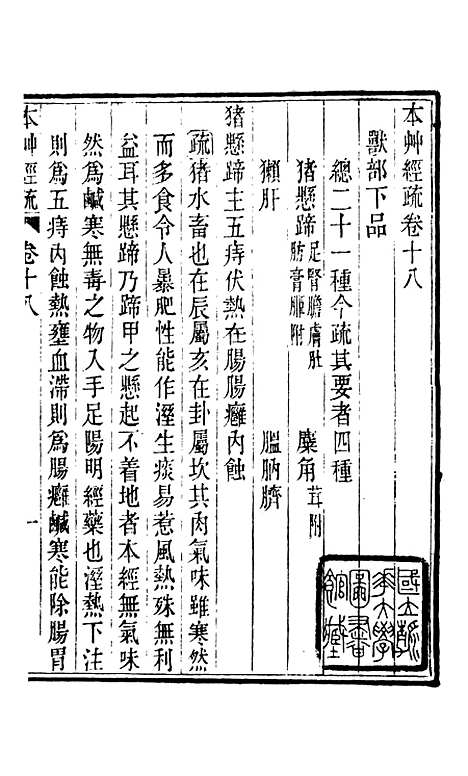 本艸經疏卷十八
獸部下品
總二十一種今疏其要者四種
猪懸蹄足腎膽膚肚肪膏䐗附 麋角茸附
獺肝 膃肭臍
猪懸蹄主五痔伏熱在腸腸癰內蝕
疏猪水畜也在辰屬亥在卦屬坎其肉氣味雖寒然
而多食令人暴肥性能作溼生痰易惹風熱殊無利
益耳其懸蹄乃蹄甲之懸起不着地者本經無氣味
然爲鹹寒無毒之物入手足陽明經藥也溼熱下注
則爲五痔內蝕熱壅血滯則爲腸癰鹹寒能除腸胃
本艸經疏 卷十八 一
國立浙江大學圖書館藏